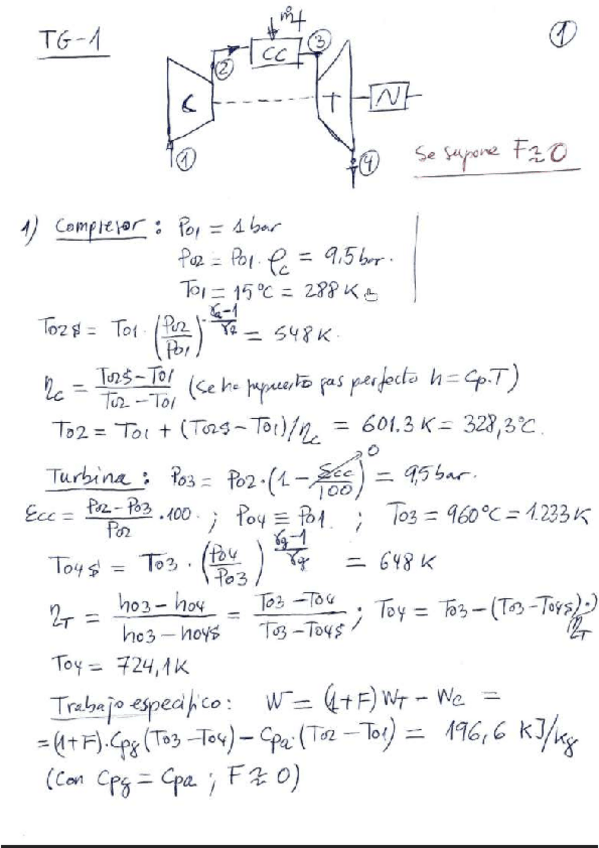 TG-1
ṁf
①
C
②
CC
③
T
N
①
④
Se supone F≈0
1) Compresor: P01 = 1 bar
P02 = P01 · ρc = 9,5 bar.
T01 = 15°C = 288 K
T02s = T01 · (P02/P01)^(γa-1/γa) = 548 K.
ηc = (T02s - T01)/(T02 - T01) (se ha supuesto gas perfecto h = Cp.T)
T02 = T01 + (T02s - T01)/ηc = 601.3 K = 328,3°C.
Turbina: P03 = P02 · (1 - Ecc/100) = 9,5 bar. 0
Ecc = (P02 - P03)/P02 · 100 ; P04 ≡ P01 ; T03 = 960°C = 1.233 K
T04s = T03 · (P04/P03)^(γg-1/γg) = 648 K
ηT = (h03 - h04)/(h03 - h04s) = (T03 - T04)/(T03 - T04s) ; T04 = T03 - (T03 - T04s) · ηT
T04 = 724,1 K
Trabajo específico: W = (1+F) WT - Wc =
= (1+F) · Cpg (T03 - T04) - Cpa · (T02 - T01) = 196,6 KJ/kg
(Con Cpg = Cpa ; F ≈ 0)